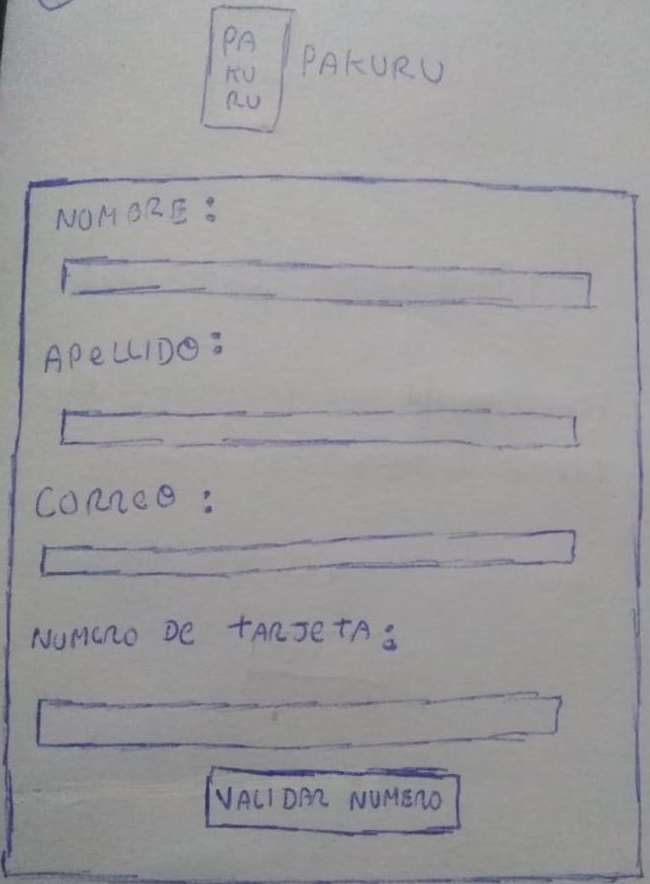 PA
KU
RU
PAKURU
NOMBRE:
APeLLIDO:
CORREO:
NUMERO DE tARJetA:
VALIDAR NUMERO